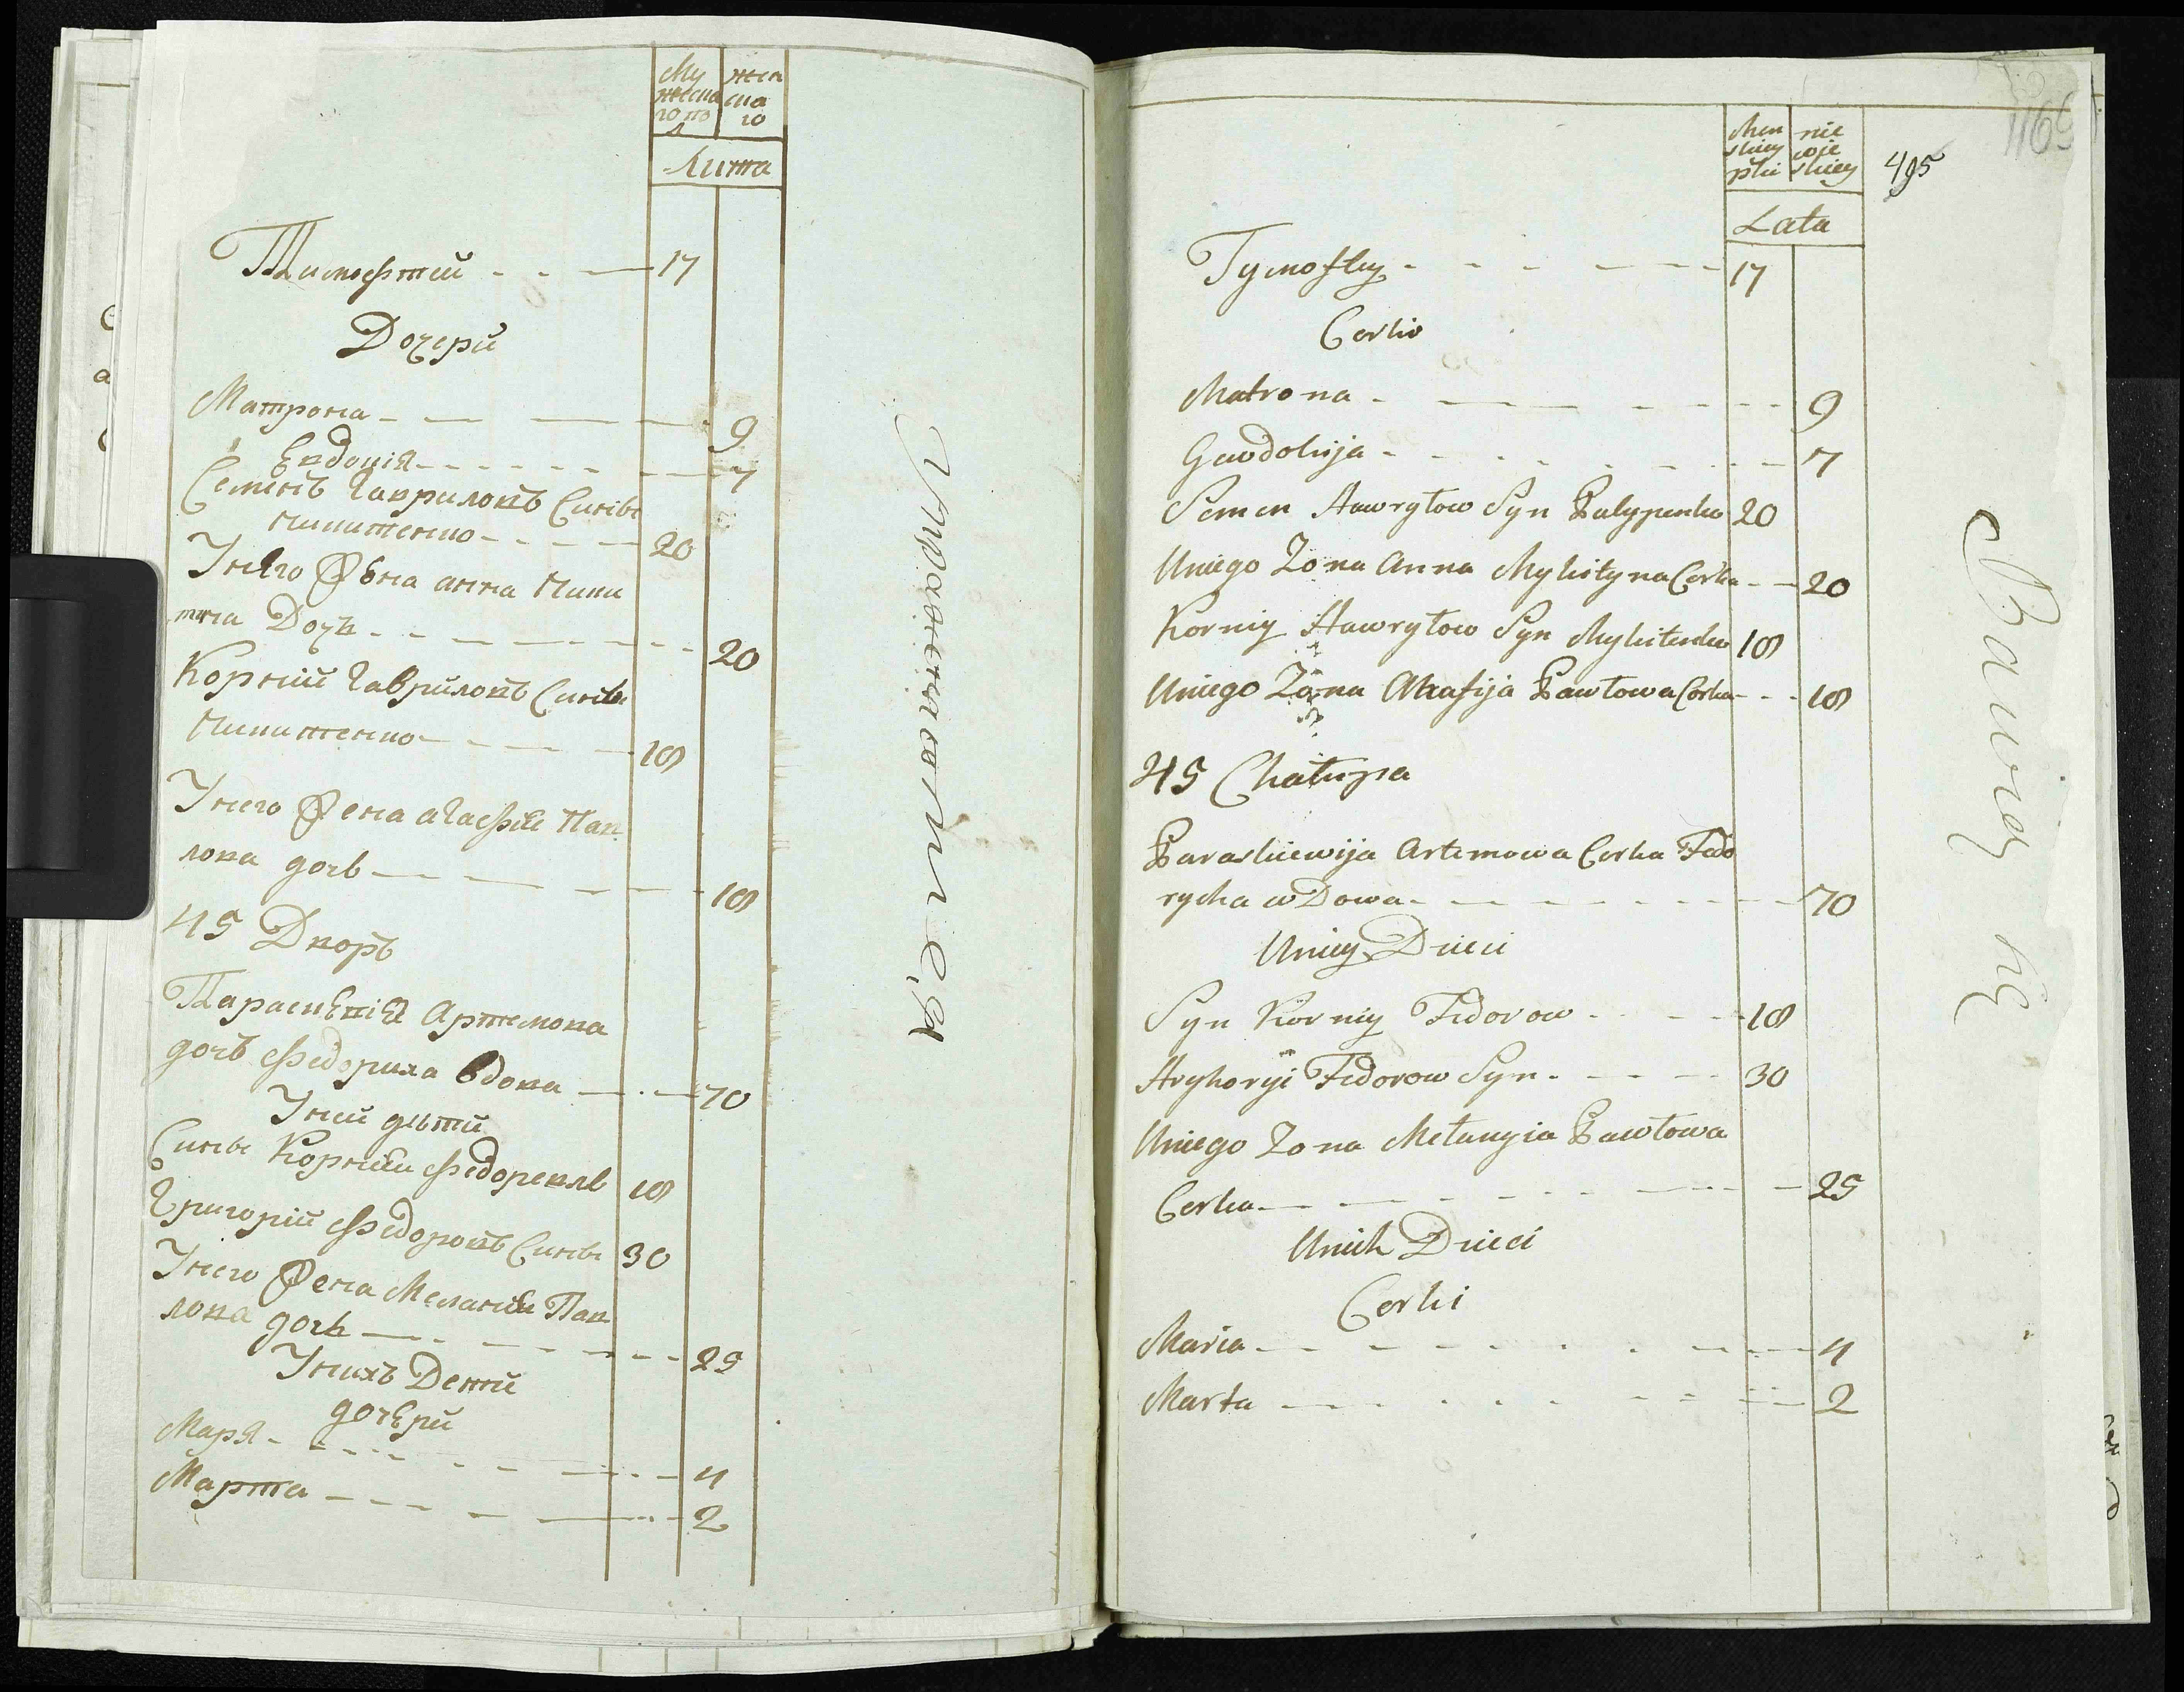 Му
жеска
го по
л
жен
ска
го
Лита
Тимофтей 17
Дочери
Матрона 9
Евдокія 7
Семенъ Гавриловъ Синъ
Никитенко 20
Унего Жена анна Ники
тна Дочь 20
Корній Гавриловъ Синъ
Никитенко 18
Унего Жена агафія Пав
лова дочь 18
45 Дворъ
Параскевія Артемова
дочъ Федориха вдова 70
Уней дѣти
Синъ Корній 18
Григорій Федоровъ Синъ 30
Унего Жена Меланія Пав
лова дочь 25
Унихъ Дети
дочери
Маря 4
Марта 2
Men
skiey
płci
nie
wie
skiey
495
1169
Lata
Tymoftey 17
Corki
Matrona 9
Gawdokija 7
Semen Hawryłow Syn 20
Uniego Zona Anna Mykityna Corka 20
Korniy Hawryłow Syn Mykitenko 18
Uniego Zona Ahafija Pawłowa Corka 18
45 Chałupa
Paraskiewija Artemowa Corka Fedo
rycha wDowa 70
Uniey Dzieci
Syn Korniy Fedorow 18
Hryhoryi Fedorow Syn 30
Uniego Zona Mełanyia Pawłowa
Corka 25
Unich Dzieci
Corki
Maria 4
Marta 2